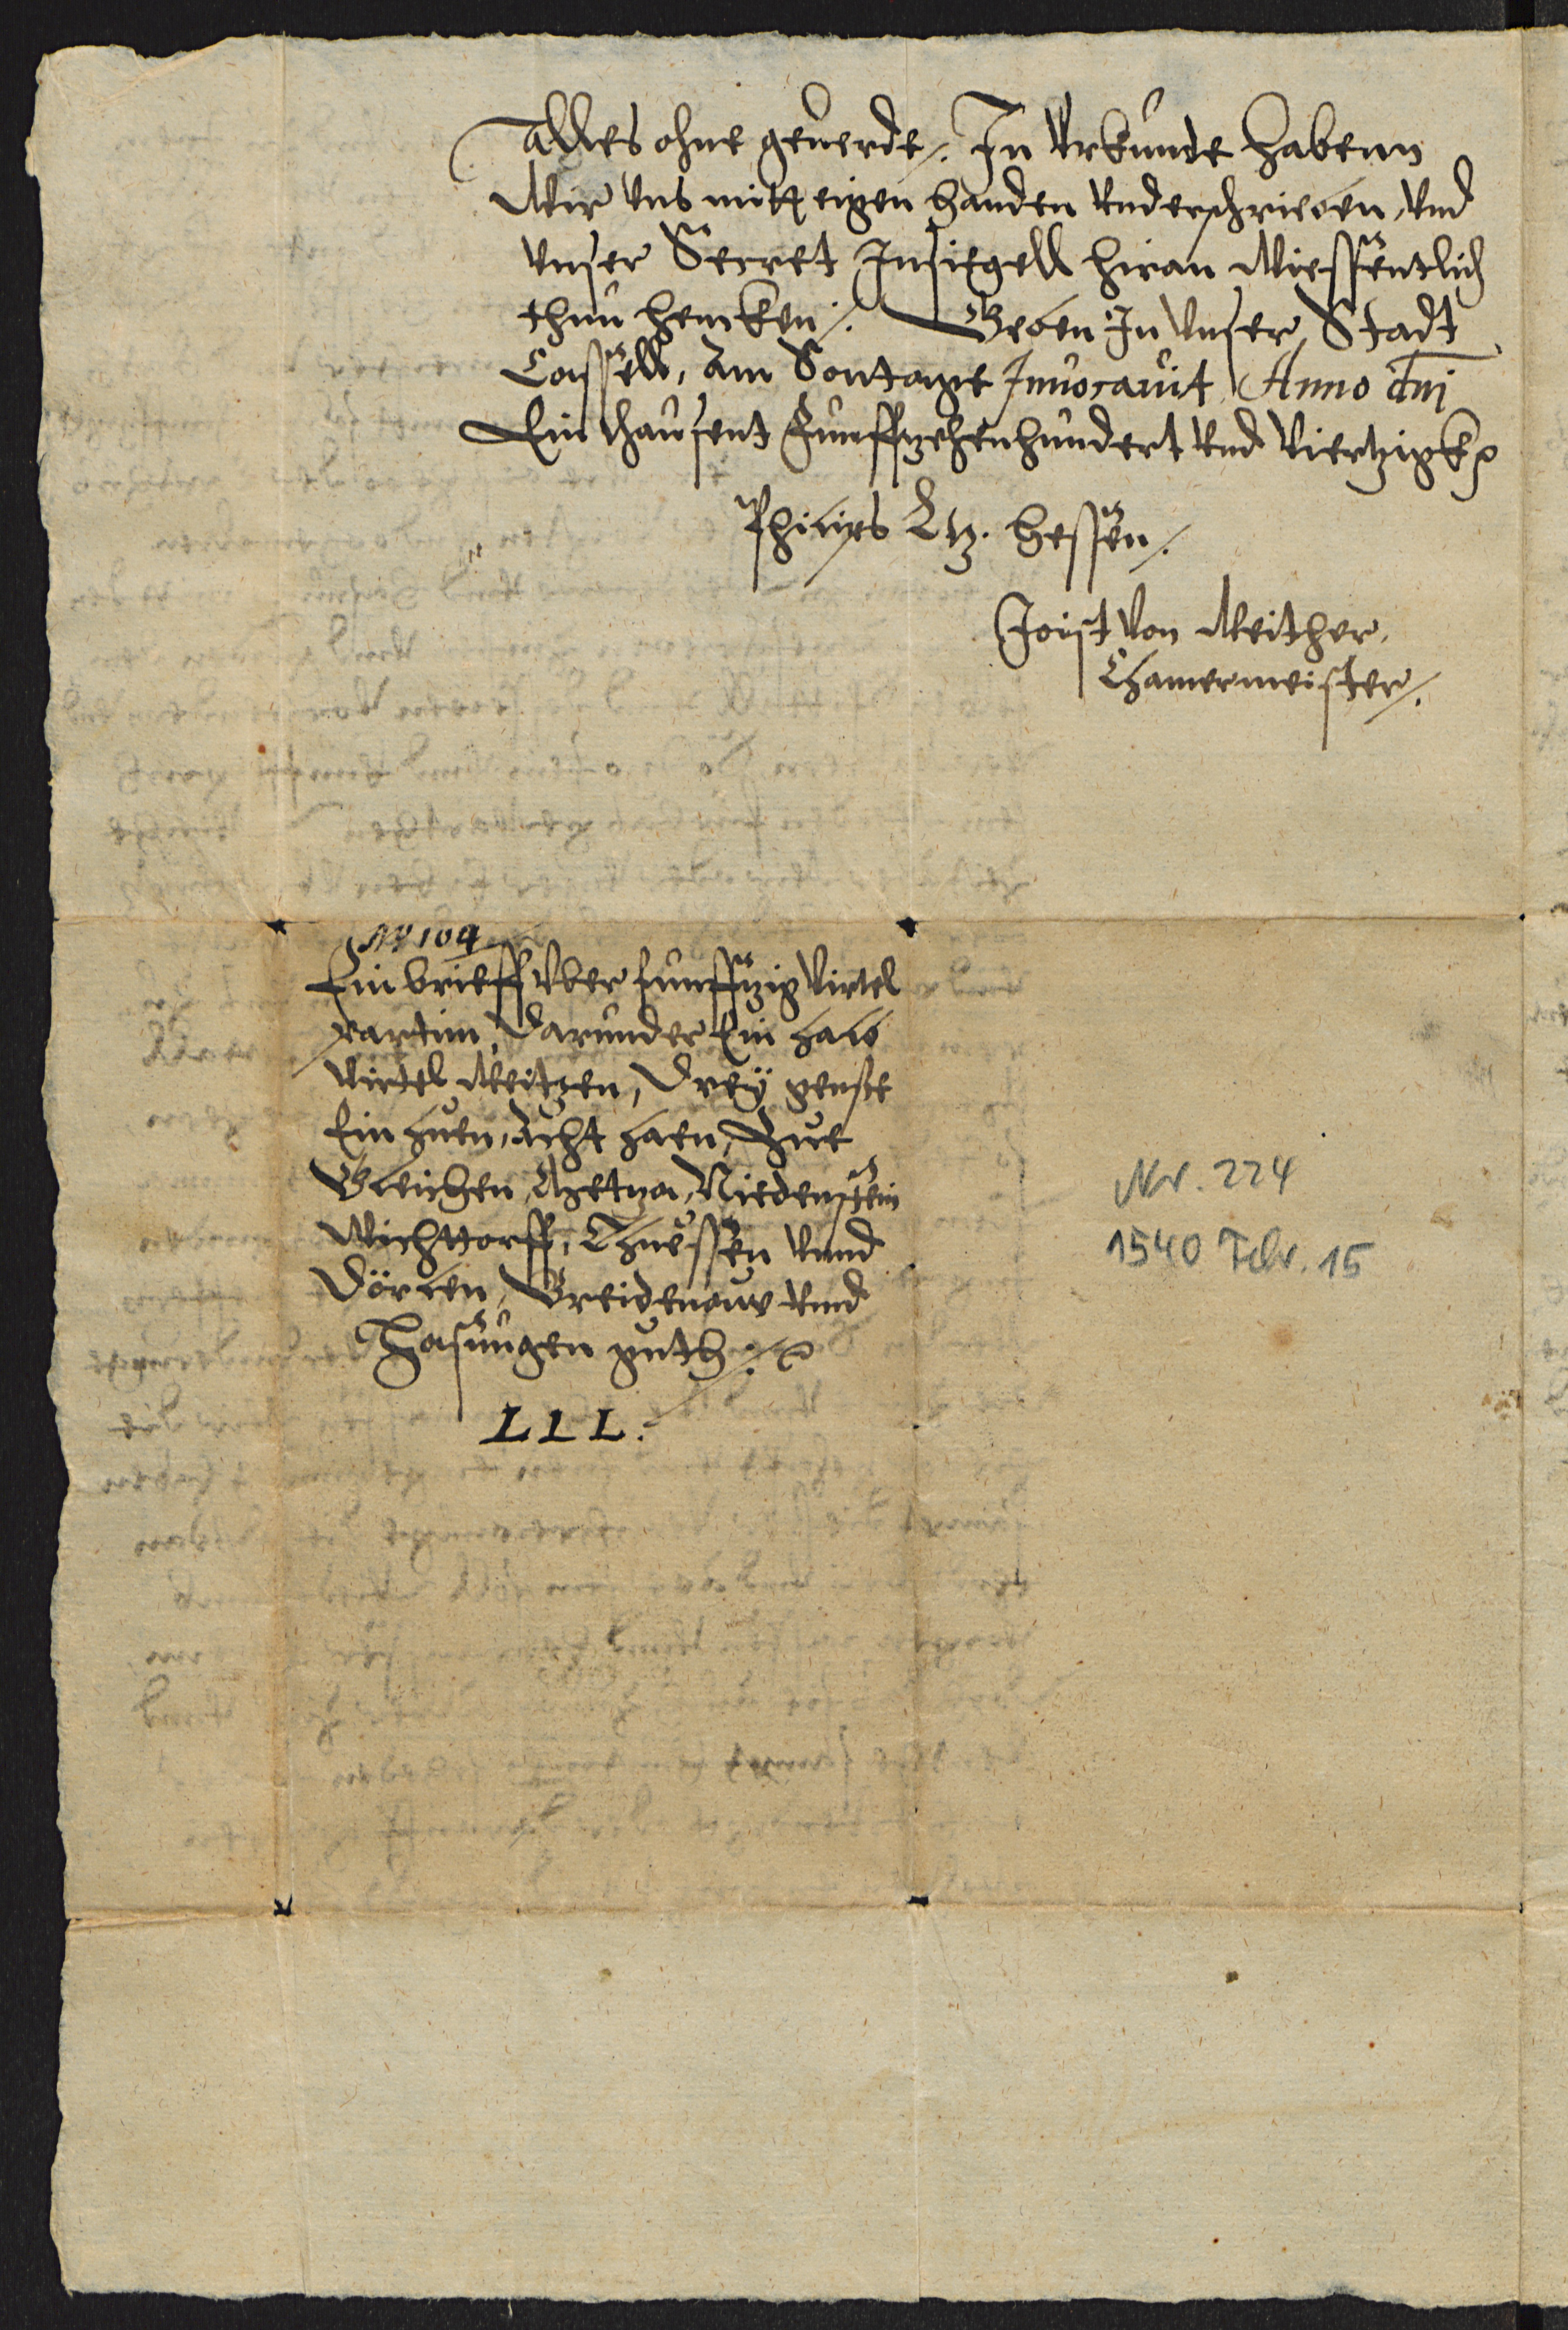 Alles ohne geuerde /. In Vrkunde habenn
Wir vns mitt eigen handen vnderschrieben, vnd
vnser Secret Insiegell hiran Wiessentlich
thun hencken /. Geben In vnser Stadt
Cassell, am Sontage Inuocauit Anno dni
Ein thausent Funffzehenhundert vnd Viertzigk
Philips Ltz. hessen /.
Joist von Weither,
Chamermeister /.
No 104
Ein brieff vber funffzig virtel
partim, darunder Ein halb
virtel Weitzen, drey gense
Ein huen, Acht haen, Zue
Gleichen, Metza, Niedenstein
Wichttorff, Thuessen vnnd
Dörlen, Breidenauw vnnd
Hasungen guth /.
LLL.
Nr. 224
1540 Febr. 15